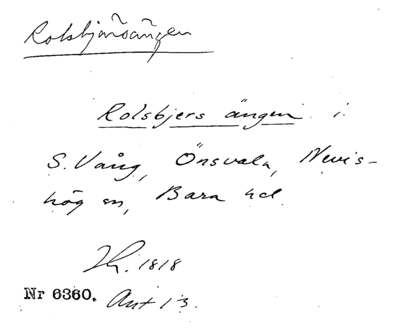 Rolsbjärsängen
Rolsbjers ängen i
S. Vång, Önsvala, Nevis-
hög sn, Bara hd.
1818
Nr 6360. Ant 13.